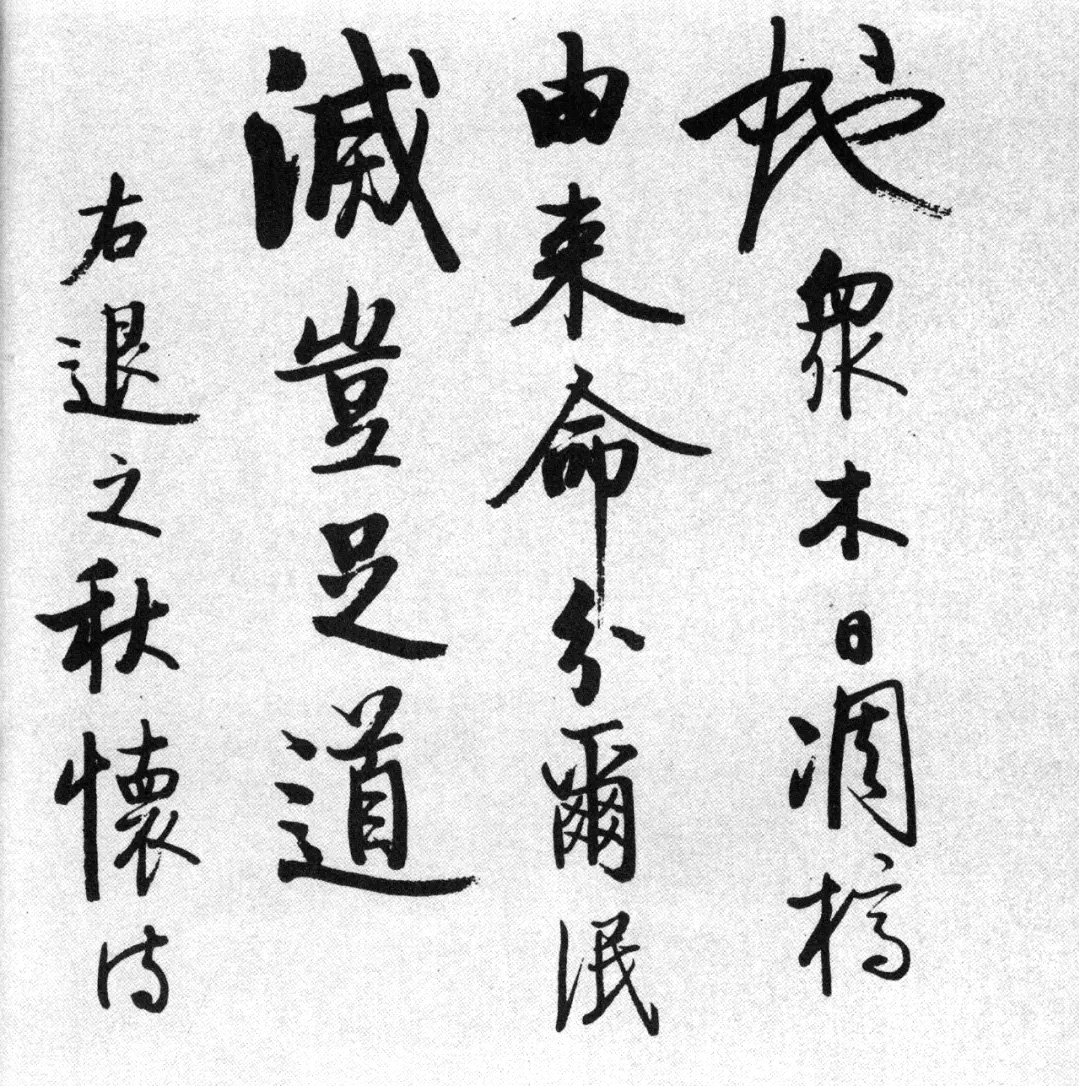 蛇衆木日凋槁
由来命分爾泯
滅豈足道
右退之秋懐詩